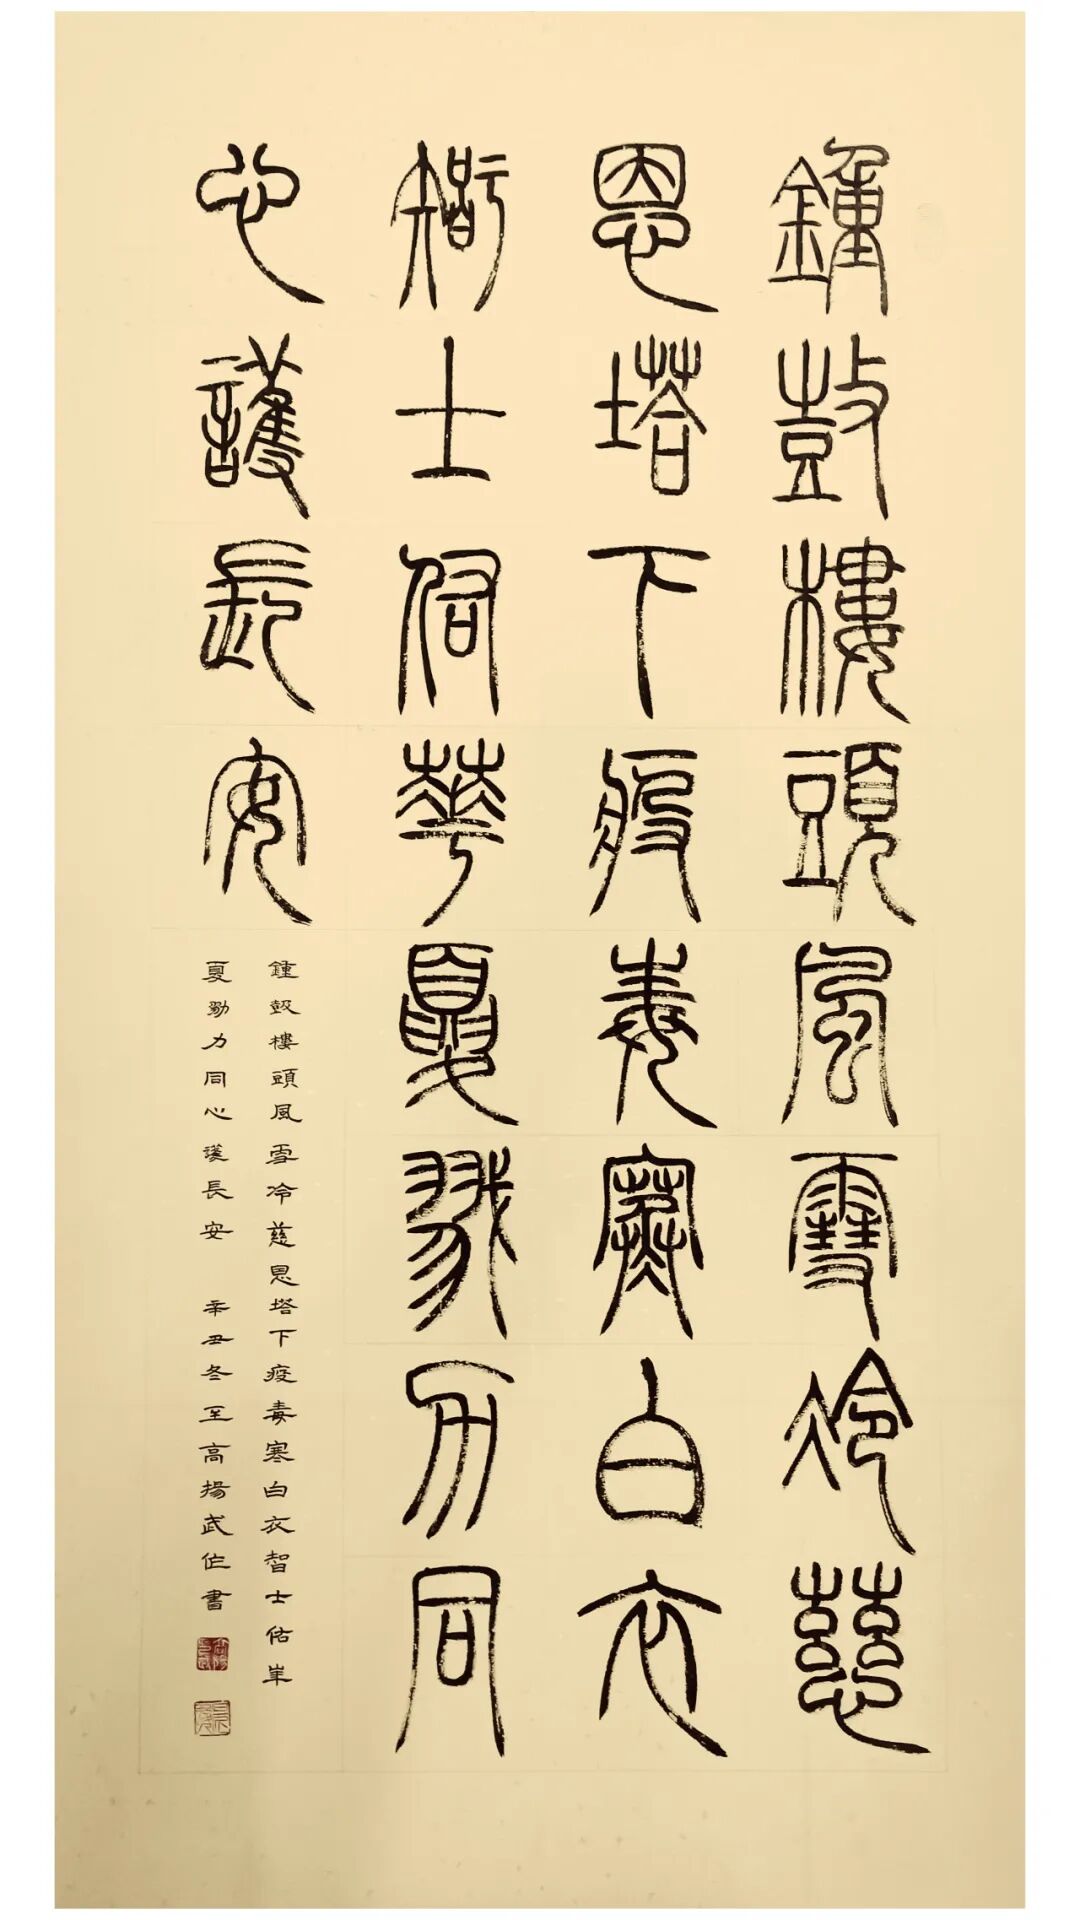 鍾鼓樓頭風雪冷慈
恩塔下疫毒寒白衣
智士佑華夏戮力同
心護長安
鍾鼓樓頭風雪冷慈恩塔下疫毒寒白衣智士佑華
夏勠力同心護長安 辛丑冬至高揚武作書